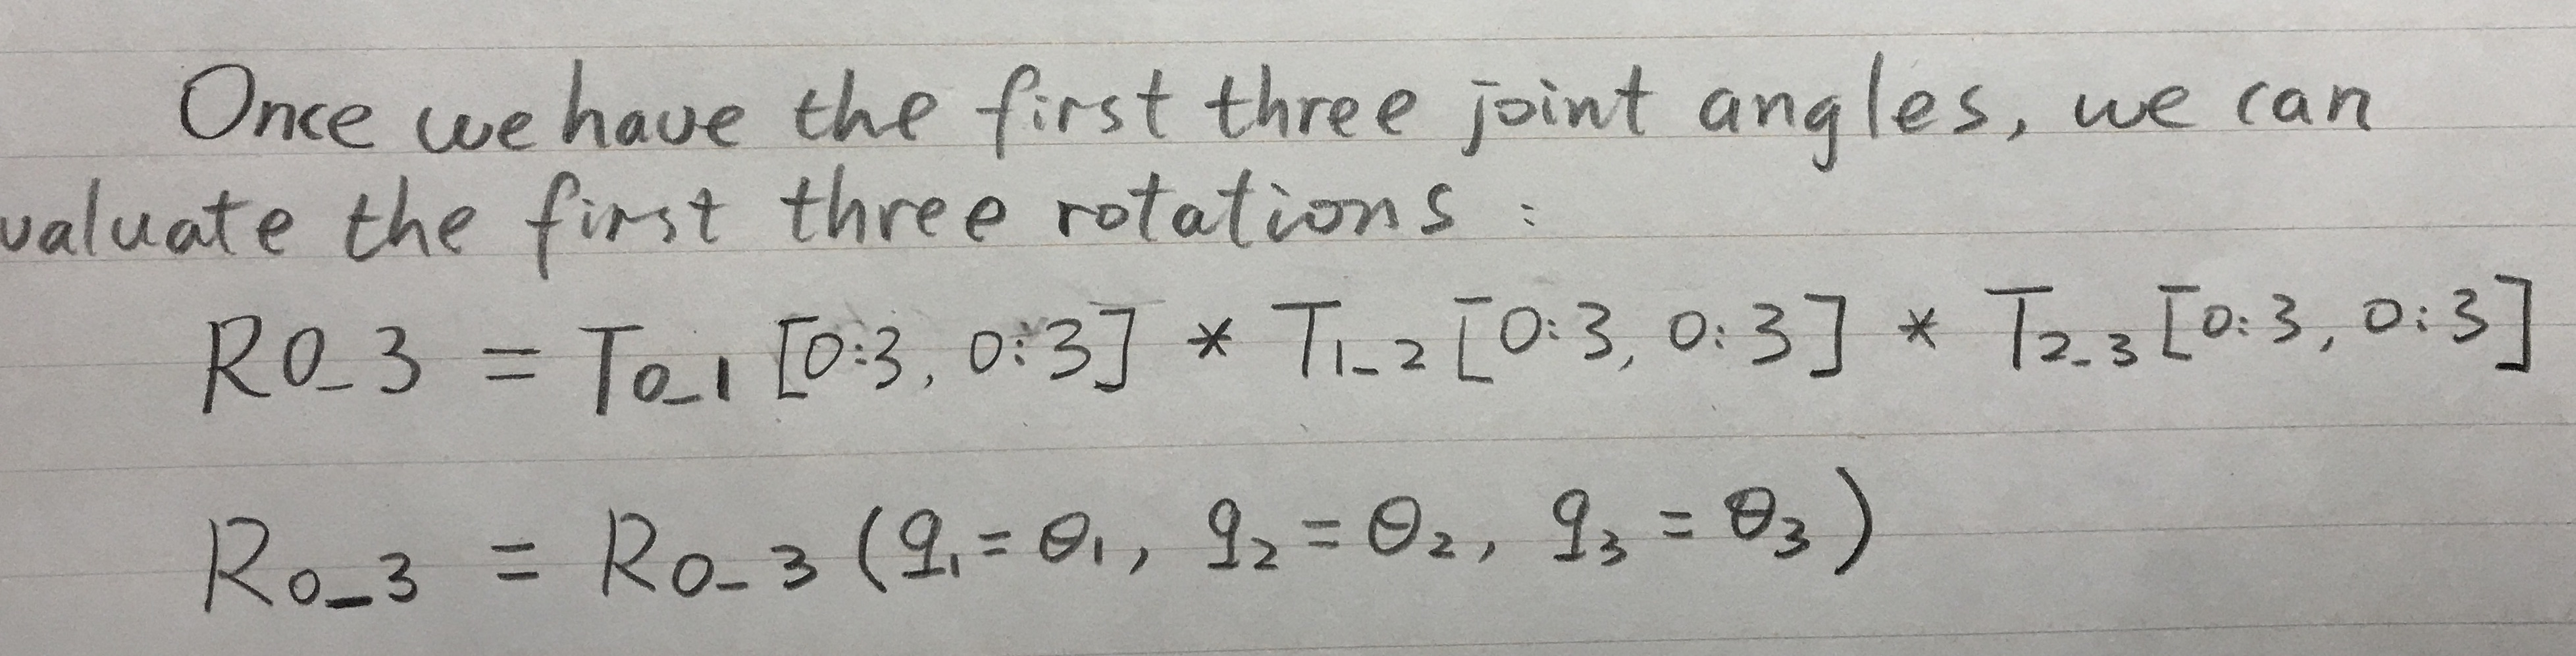 Once we have the first three joint angles, we can
valuate the first three rotations :
R0_3 = T0_1 [0:3, 0:3] * T1_2 [0:3, 0:3] * T2_3 [0:3, 0:3]
R0_3 = R0_3 (q1=θ1, q2=θ2, q3=θ3)